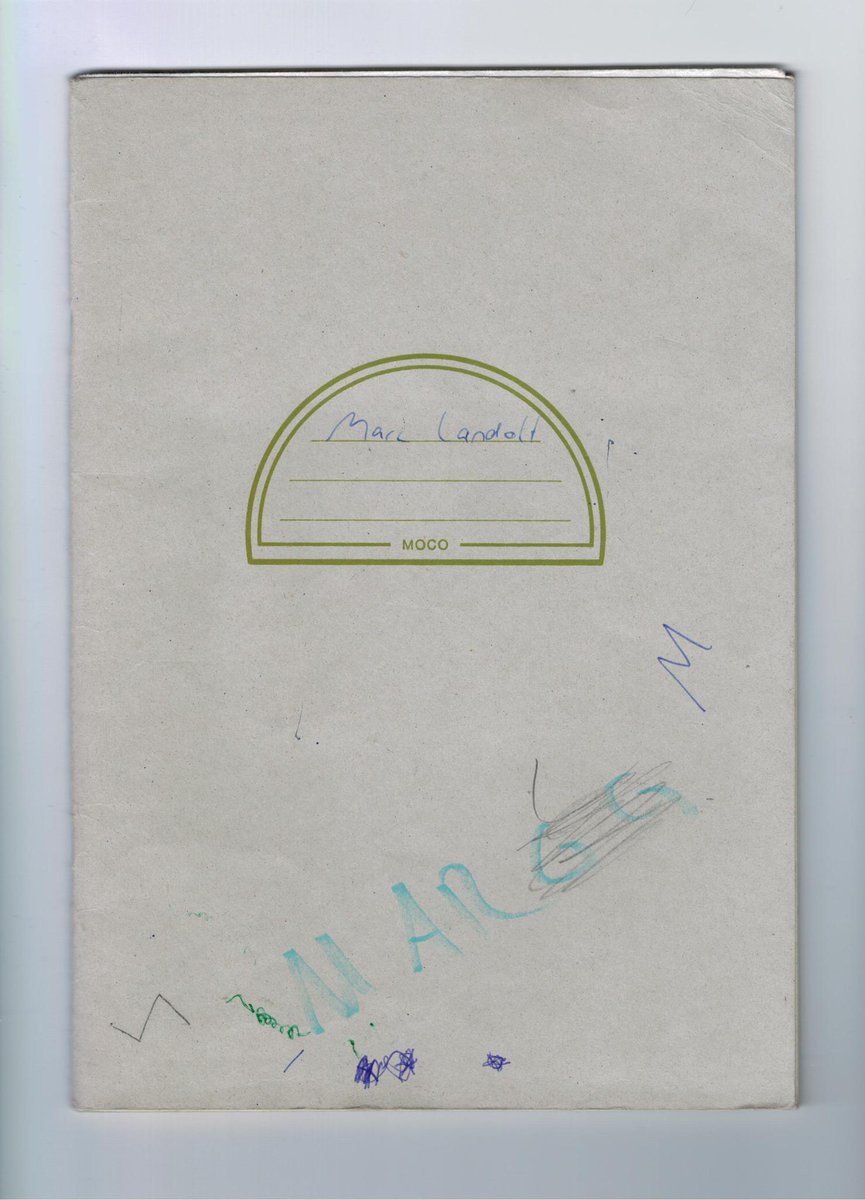 Marc Landolt
MOCO
M
MARC